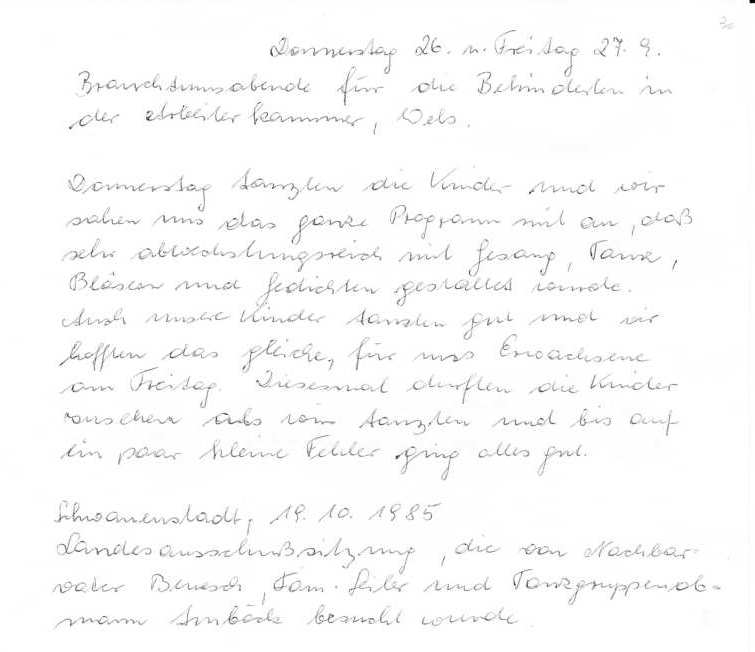 30
Donnerstag 26. u. Freitag 27. 9.
Brauchtumsabende für die Behinderten in
der Arbeiterkammer, Wels.
Donnerstag tanzten die Kinder und wir
sahen uns das ganze Programm mit an, daß
sehr abwechslungsreich mit Gesang, Tanz,
Bläser und Gedichten gestaltet wurde.
Auch unsere Kinder tanzten gut und wir
hofften das gleiche, für uns Erwachsene
am Freitag. Diesesmal durften die Kinder
zusehen als wir tanzten und bis auf
ein paar kleine Fehler ging alles gut.
Schwanenstadt, 19. 10. 1985
Landesausschußsitzung, die von Nachbar-
vater Benesch, Fam. Seiler und Tanzgruppenob-
mann besucht wurde.